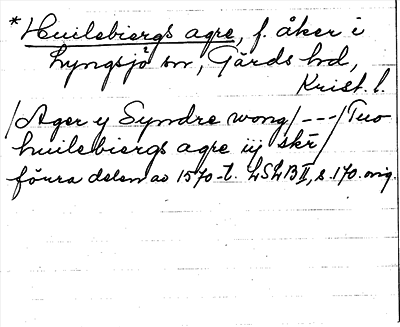 * Huilebiergs agre, f. åker i
Lyngsjö sn, Gärds hd,
Krist. l.
/Ager y Syndre wong/---/Tuo
huilebiergs agre iij skr/
förra delen av 1570-t. LSLB II, s. 170. orig.